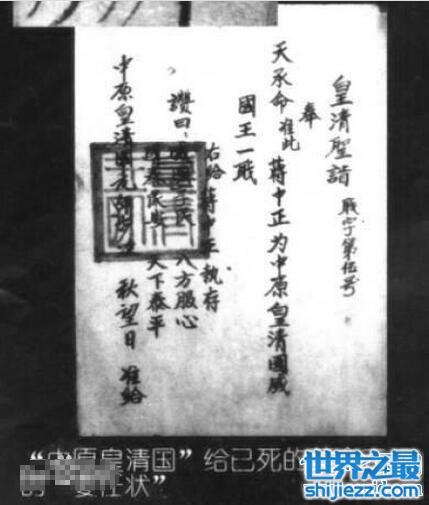 皇清聖誥 字第伍号
奉
天承命准此 蒋中正为中原皇清國威
國王一
右给蒋中正執存
讚曰： 八方服心
民 天下泰平
中原皇清國元 秋望日 准给
“中原皇清国”给已死的
的“委任状”
世界之最
shijiezz.com